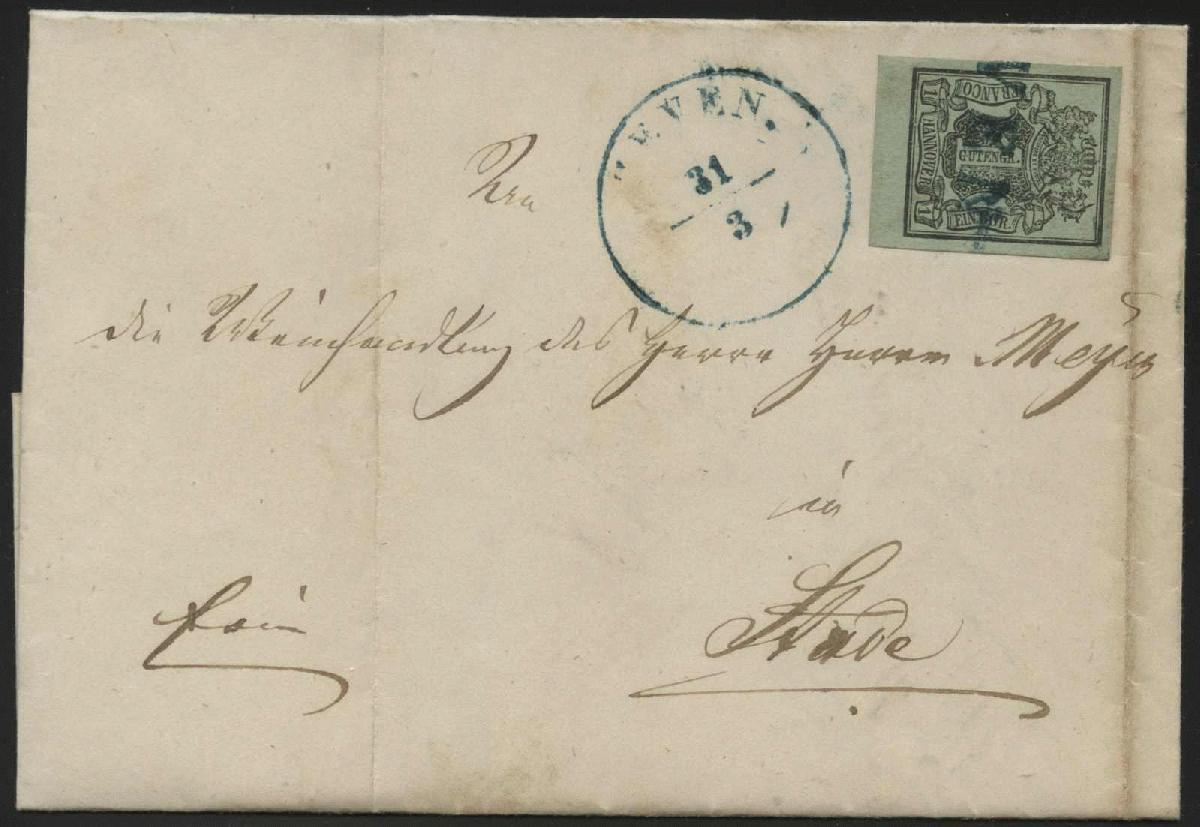 ZEVEN.
31
3
FRANCO
1 HANNOVER 1
GUTENGR.
EIN GGR.
An
die Weinhandlung des Herrn Herrn Meyer
in
Stade
frei